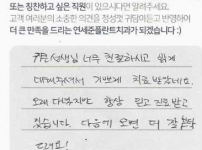 또는 칭찬하고 싶은 직원이 있으시다면 알려주세요.
고객 여러분의 소중한 의견을 정성껏 귀담아듣고 반영하여
더 큰 만족을 드리는 연세준플란트치과가 되겠습니다 :)
선생님 너무 친절하시고 쉽게
치료 받았네요.
오래 다녔지만 항상 믿고 치료받고
있습니다 다음에 오면 더 잘